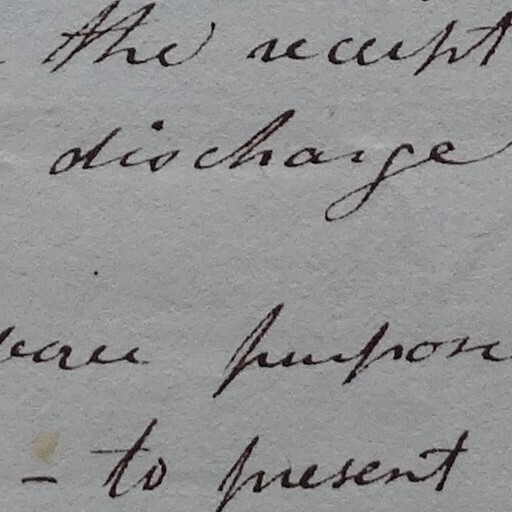 the receipt
discharge
purpose
- to present